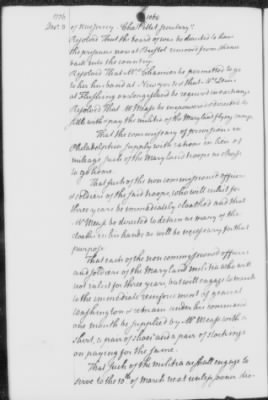 1776
1006
Decr. 3 of New Jersey Chas. Pettit Secretary.
Resolved That the board of war be directed to have
the prisoners now at Bristol removed from thence
back into the country.
Resolved That Mrs. Chamier be permitted to go
to her husband at New york & that Mrs.
at Flushing on long island be request in exchange
Resolved That Mr. Mease be empowered & directed to
settle with & pay the militia of the Maryland flying camp.
That the commissary of provisions in
Philadelphia supply with rations in lieu of
mileage such of the Maryland troops as chuse
to go home.
That such of the non commissioned officers
& soldiers of the said troops, who will enlist for
three years be immediately cloathed and that
Mr. Mease be directed to detain as many of the
cloaths in his hands as will be necessary for that
purpose
That each of the non commissioned officers
and soldiers of the Maryland militia who will
not enlist for three years, but will engage to march
to the immediate reinforcement of general
Washington & remain under his command
one month be supplied by Mr. Mease with a
shirt, a pair of shoes and a pair of stockings
on paying for the same.
That such of the militia as shall engage to
serve to the 10th of March next unless sooner dis-